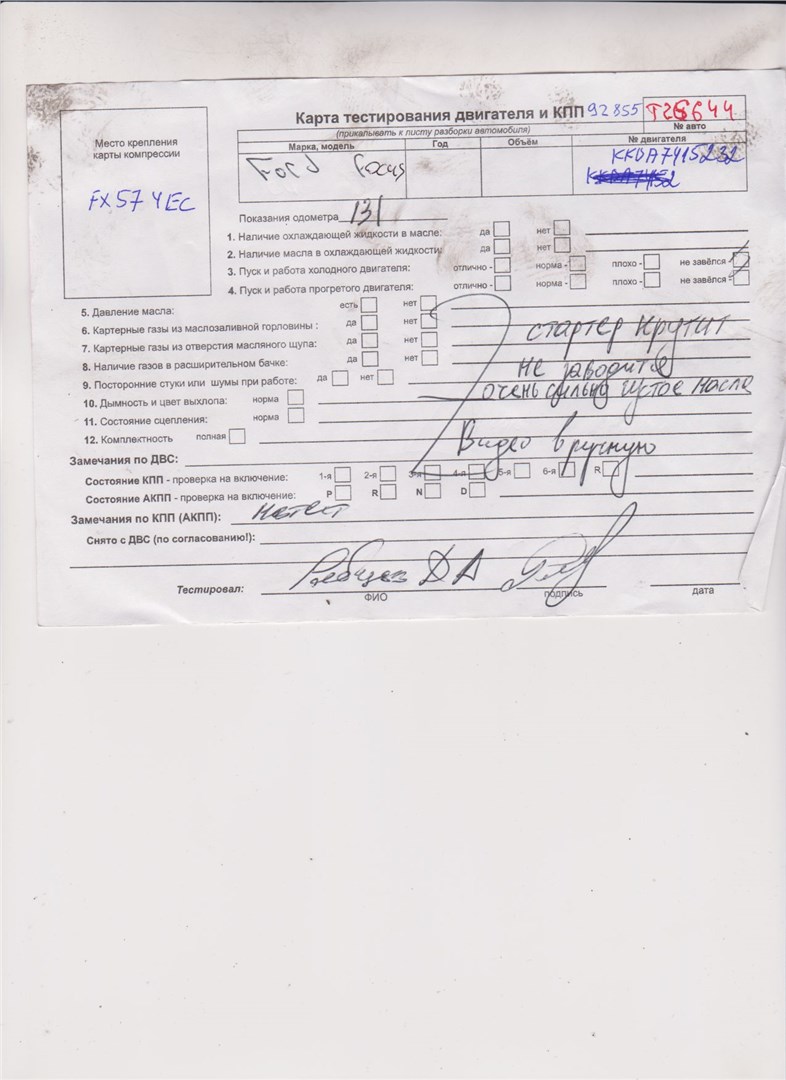 Место крепления
карты компрессии
FX57YEC
Карта тестирования двигателя и КПП 92855
(прикалывать к листу разборки автомобиля)
№ авто
Марка, модель Год Объём № двигателя
Ford Focus KKDA7Y15232
Показания одометра 131
1. Наличие охлаждающей жидкости в масле: да нет
2. Наличие масла в охлаждающей жидкости: да нет
3. Пуск и работа холодного двигателя: отлично - норма - плохо - не завёлся -
4. Пуск и работа прогретого двигателя: отлично - норма - плохо - не завёлся -
5. Давление масла: есть нет
6. Картерные газы из маслозаливной горловины : да нет стартер крутит
7. Картерные газы из отверстия масляного щупа: да нет
8. Наличие газов в расширительном бачке: да нет не заводится
9. Посторонние стуки или шумы при работе: да нет очень сильно густое масло
10. Дымность и цвет выхлопа: норма
11. Состояние сцепления: норма
12. Комплектность полная Видео вручную
Замечания по ДВС:
Состояние КПП - проверка на включение: 1-я 2-я 3-я 4-я 5-я 6-я R
Состояние АКПП - проверка на включение: P R N D
Замечания по КПП (АКПП): не тест
Снято с ДВС (по согласованию!):
Тестировал: Д А
ФИО подпись дата